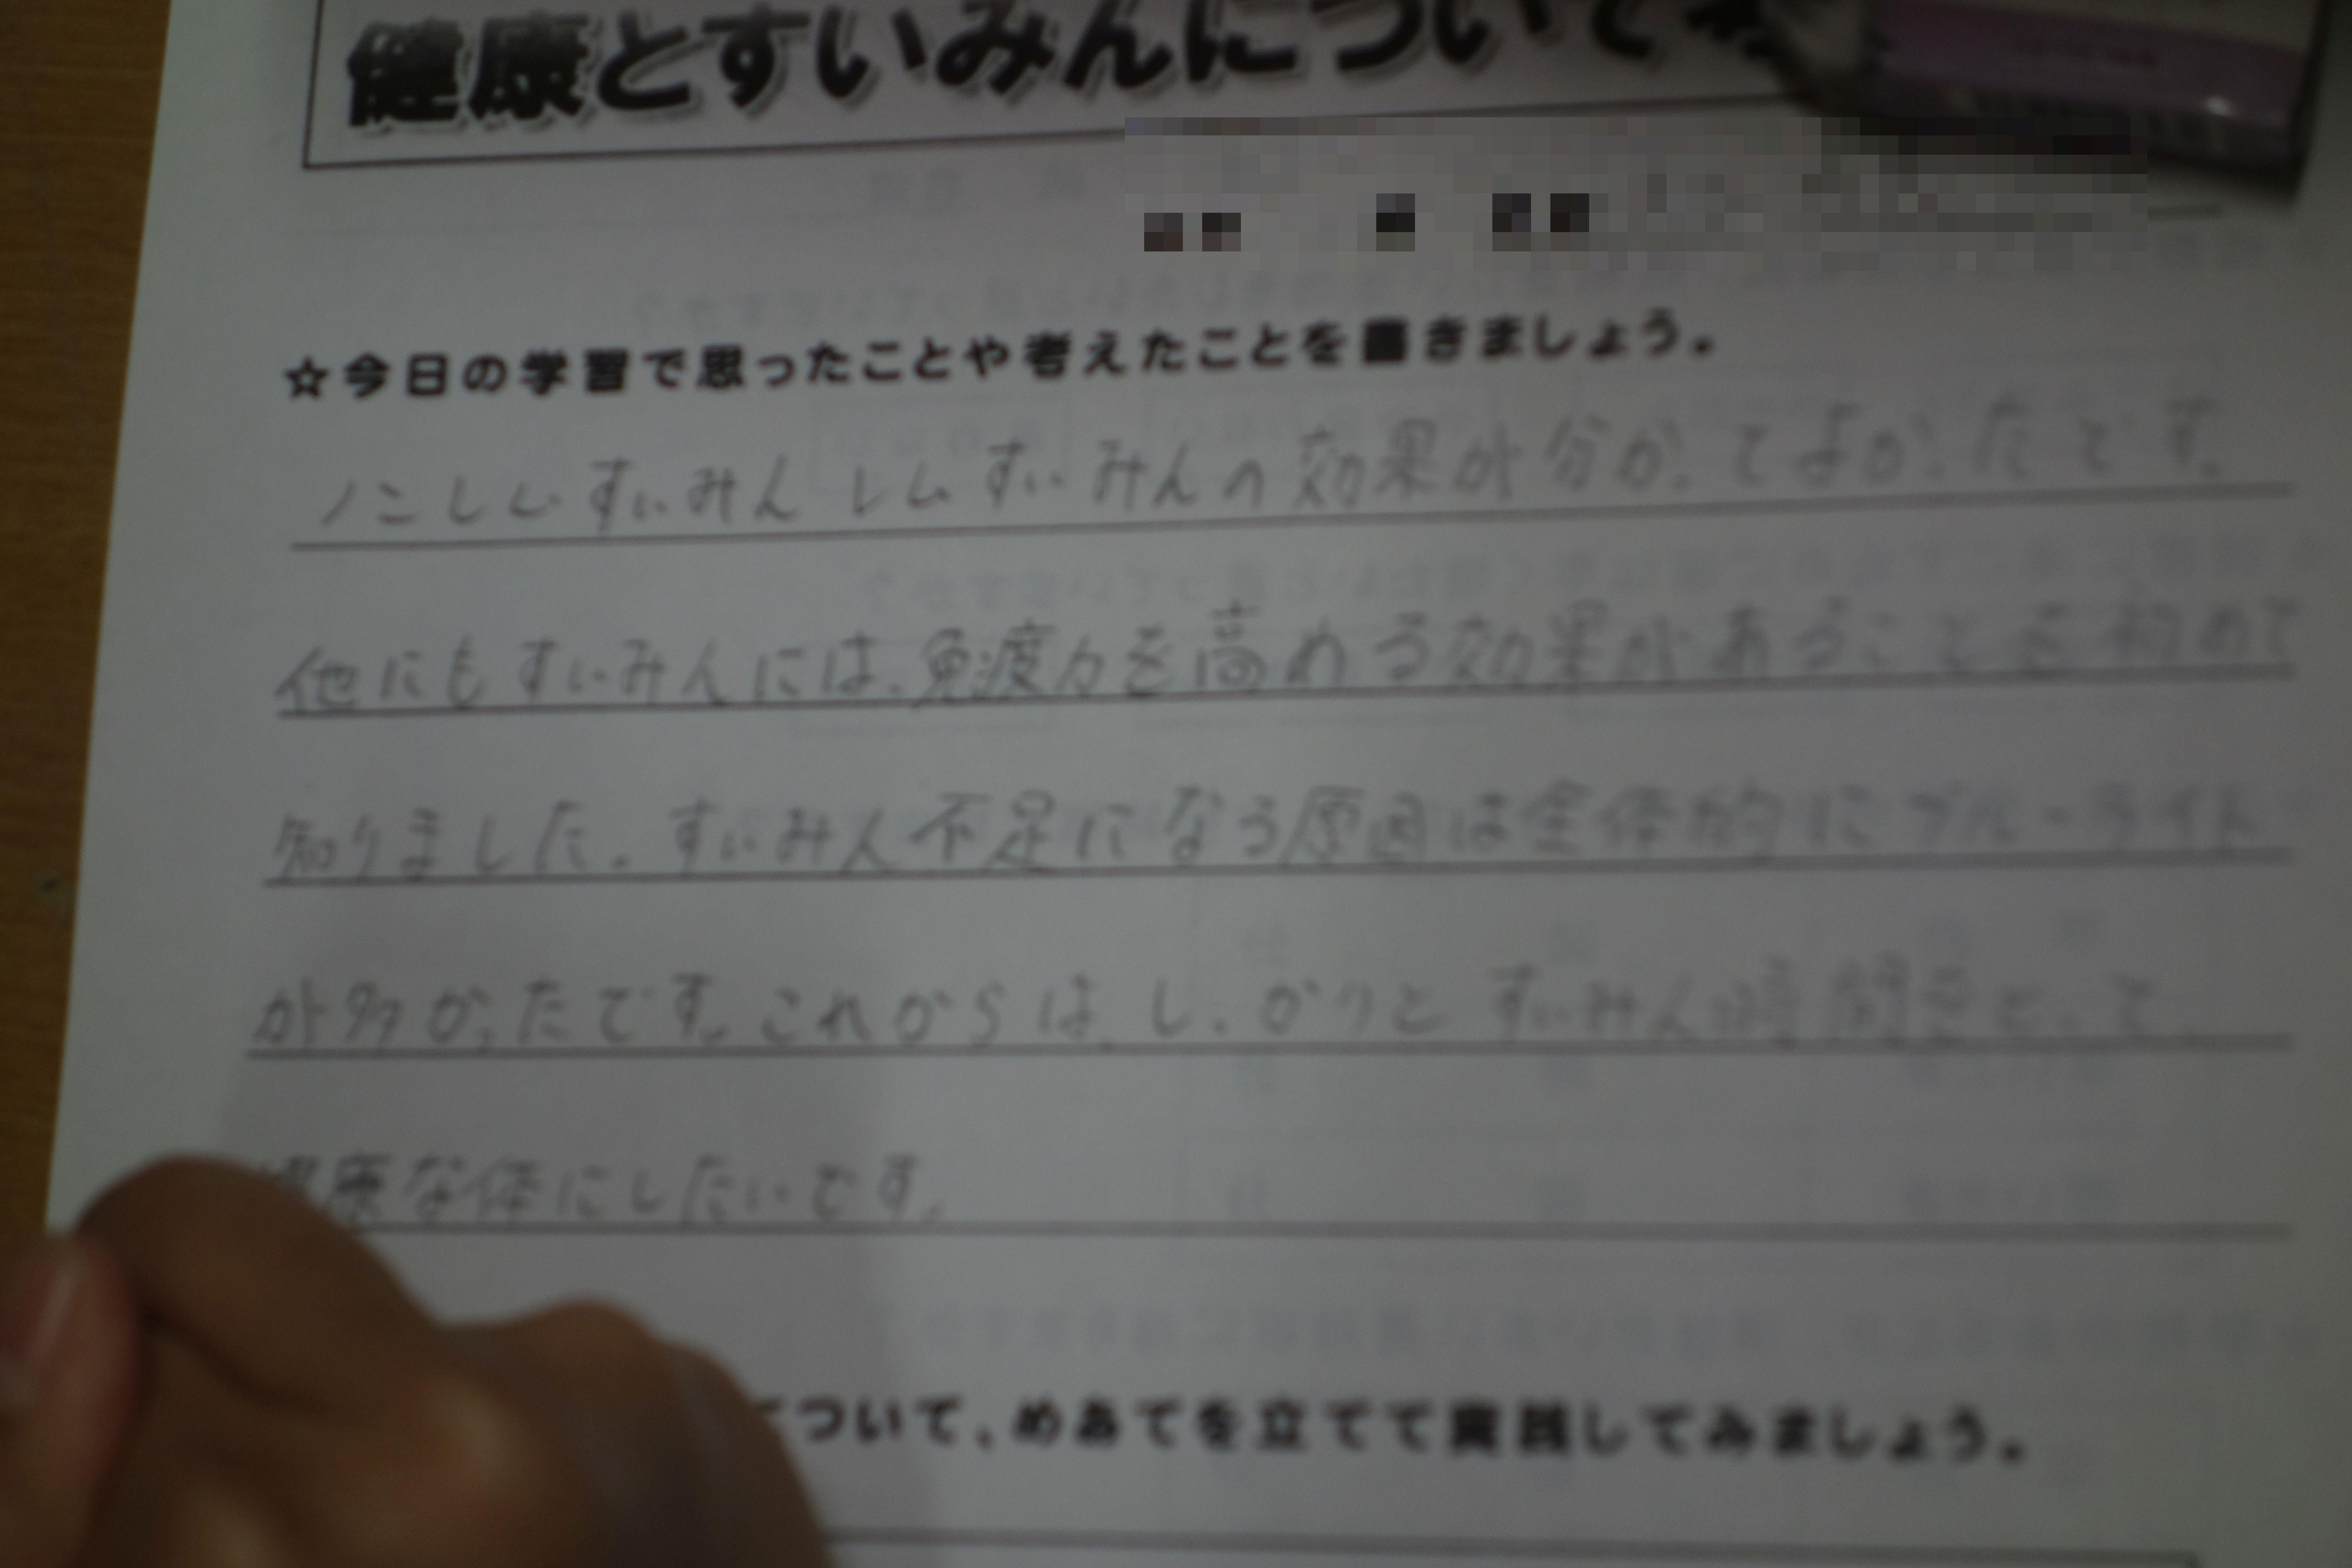 健康とすいみんについて考
☆今日の学習で思ったことや考えたことを書きましょう。
ノンレムすいみんレムすいみんの効果が分かってよかったです。
他にもすいみんには、免疫力を高める効果があることを初めて
知りました。すいみん不足になる原因は全体的にブルーライト
が多かったです。これからは、しっかりとすいみん時間をとって
健康な体にしたいです。
ついて、めあてを立てて実践してみましょう。